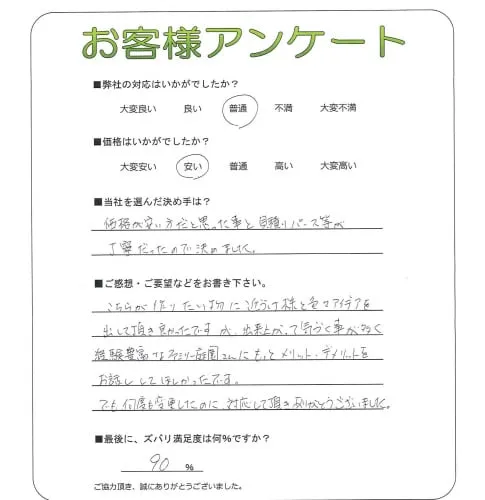 お客様アンケート
■弊社の対応はいかがでしたか？
大変良い 良い 普通 不満 大変不満
■価格はいかがでしたか？
大変安い 安い 普通 高い 大変高い
■当社を選んだ決め手は？
価格が安い方だと思った事と見積りパース等が
丁寧だったので決めました。
■ご感想・ご要望などをお書き下さい。
こちらが作りたい物に近づけ様と色々アイデアを
出して頂き良かったですが、出来上がって気づく事が多く
経験豊富なファミリー庭園さんにもっとメリット・デメリットを
お話ししてほしかったです。
でも何度も変更したのに対応して頂きありがとうございました。
■最後に、ズバリ満足度は何％ですか？
90 ％
ご協力頂き、誠にありがとうございました。